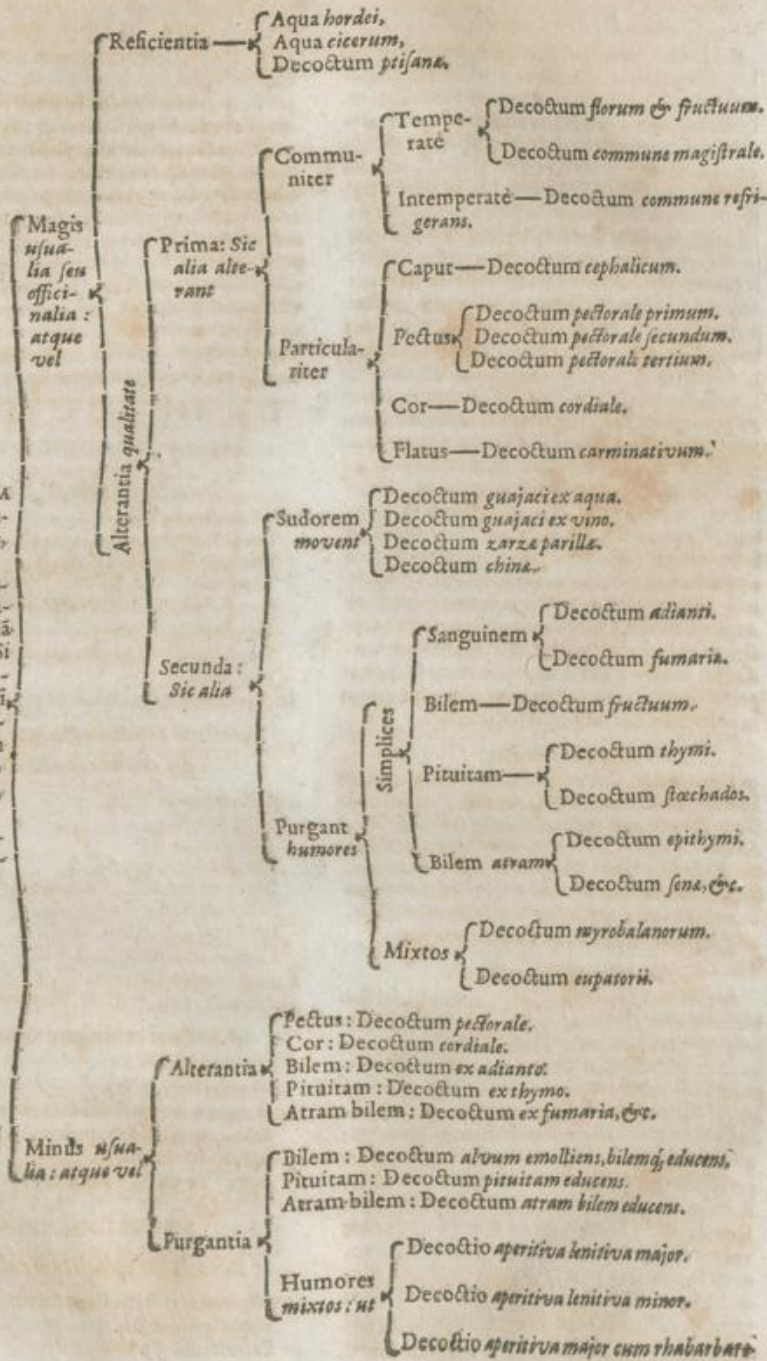 Magis
usua-
lia seu
offici-
nalia:
atque
vel
Reficientia
Aqua hordei,
Aqua cicerum,
Decoctum ptisanæ.
Alterantia qualitate
Prima: Sic
alia alte-
rant
Commu-
niter
Tempe-
ratè
Decoctum florum & fructuum.
Decoctum commune magistrale.
Intemperatè—Decoctum commune refri-
gerans.
Particula-
riter
Caput—Decoctum cephalicum.
Pectus
Decoctum pectorale primum.
Decoctum pectorale secundum.
Decoctum pectorale tertium.
Cor—Decoctum cordiale.
Flatus—Decoctum carminativum.
Secunda:
Sic alia
Sudorem
movent
Decoctum guajaci ex aqua.
Decoctum guajaci ex vino.
Decoctum zarzæ parillæ.
Decoctum chinæ.
Purgant
humores
Simplices
Sanguinem
Decoctum adianti.
Decoctum fumariæ.
Bilem—Decoctum fructuum.
Pituitam—
Decoctum thymi.
Decoctum stœchados.
Bilem atram
Decoctum epithymi.
Decoctum senæ, &c.
Mixtos
Decoctum myrobalanorum.
Decoctum eupatorii.
Minùs usua-
lia: atque vel
Alterantia
Pectus: Decoctum pectorale.
Cor: Decoctum cordiale.
Bilem: Decoctum ex adianto.
Pituitam: Decoctum ex thymo.
Atram bilem: Decoctum ex fumaria, &c.
Purgantia
Bilem: Decoctum alvum emolliens, bilemq́; educens.
Pituitam: Decoctum pituitam educens.
Atram bilem: Decoctum atram bilem educens.
Humores
mixtos: ut
Decoctio aperitiva lenitiva major.
Decoctio aperitiva lenitiva minor.
Decoctio aperitiva major cum rhabarbaro